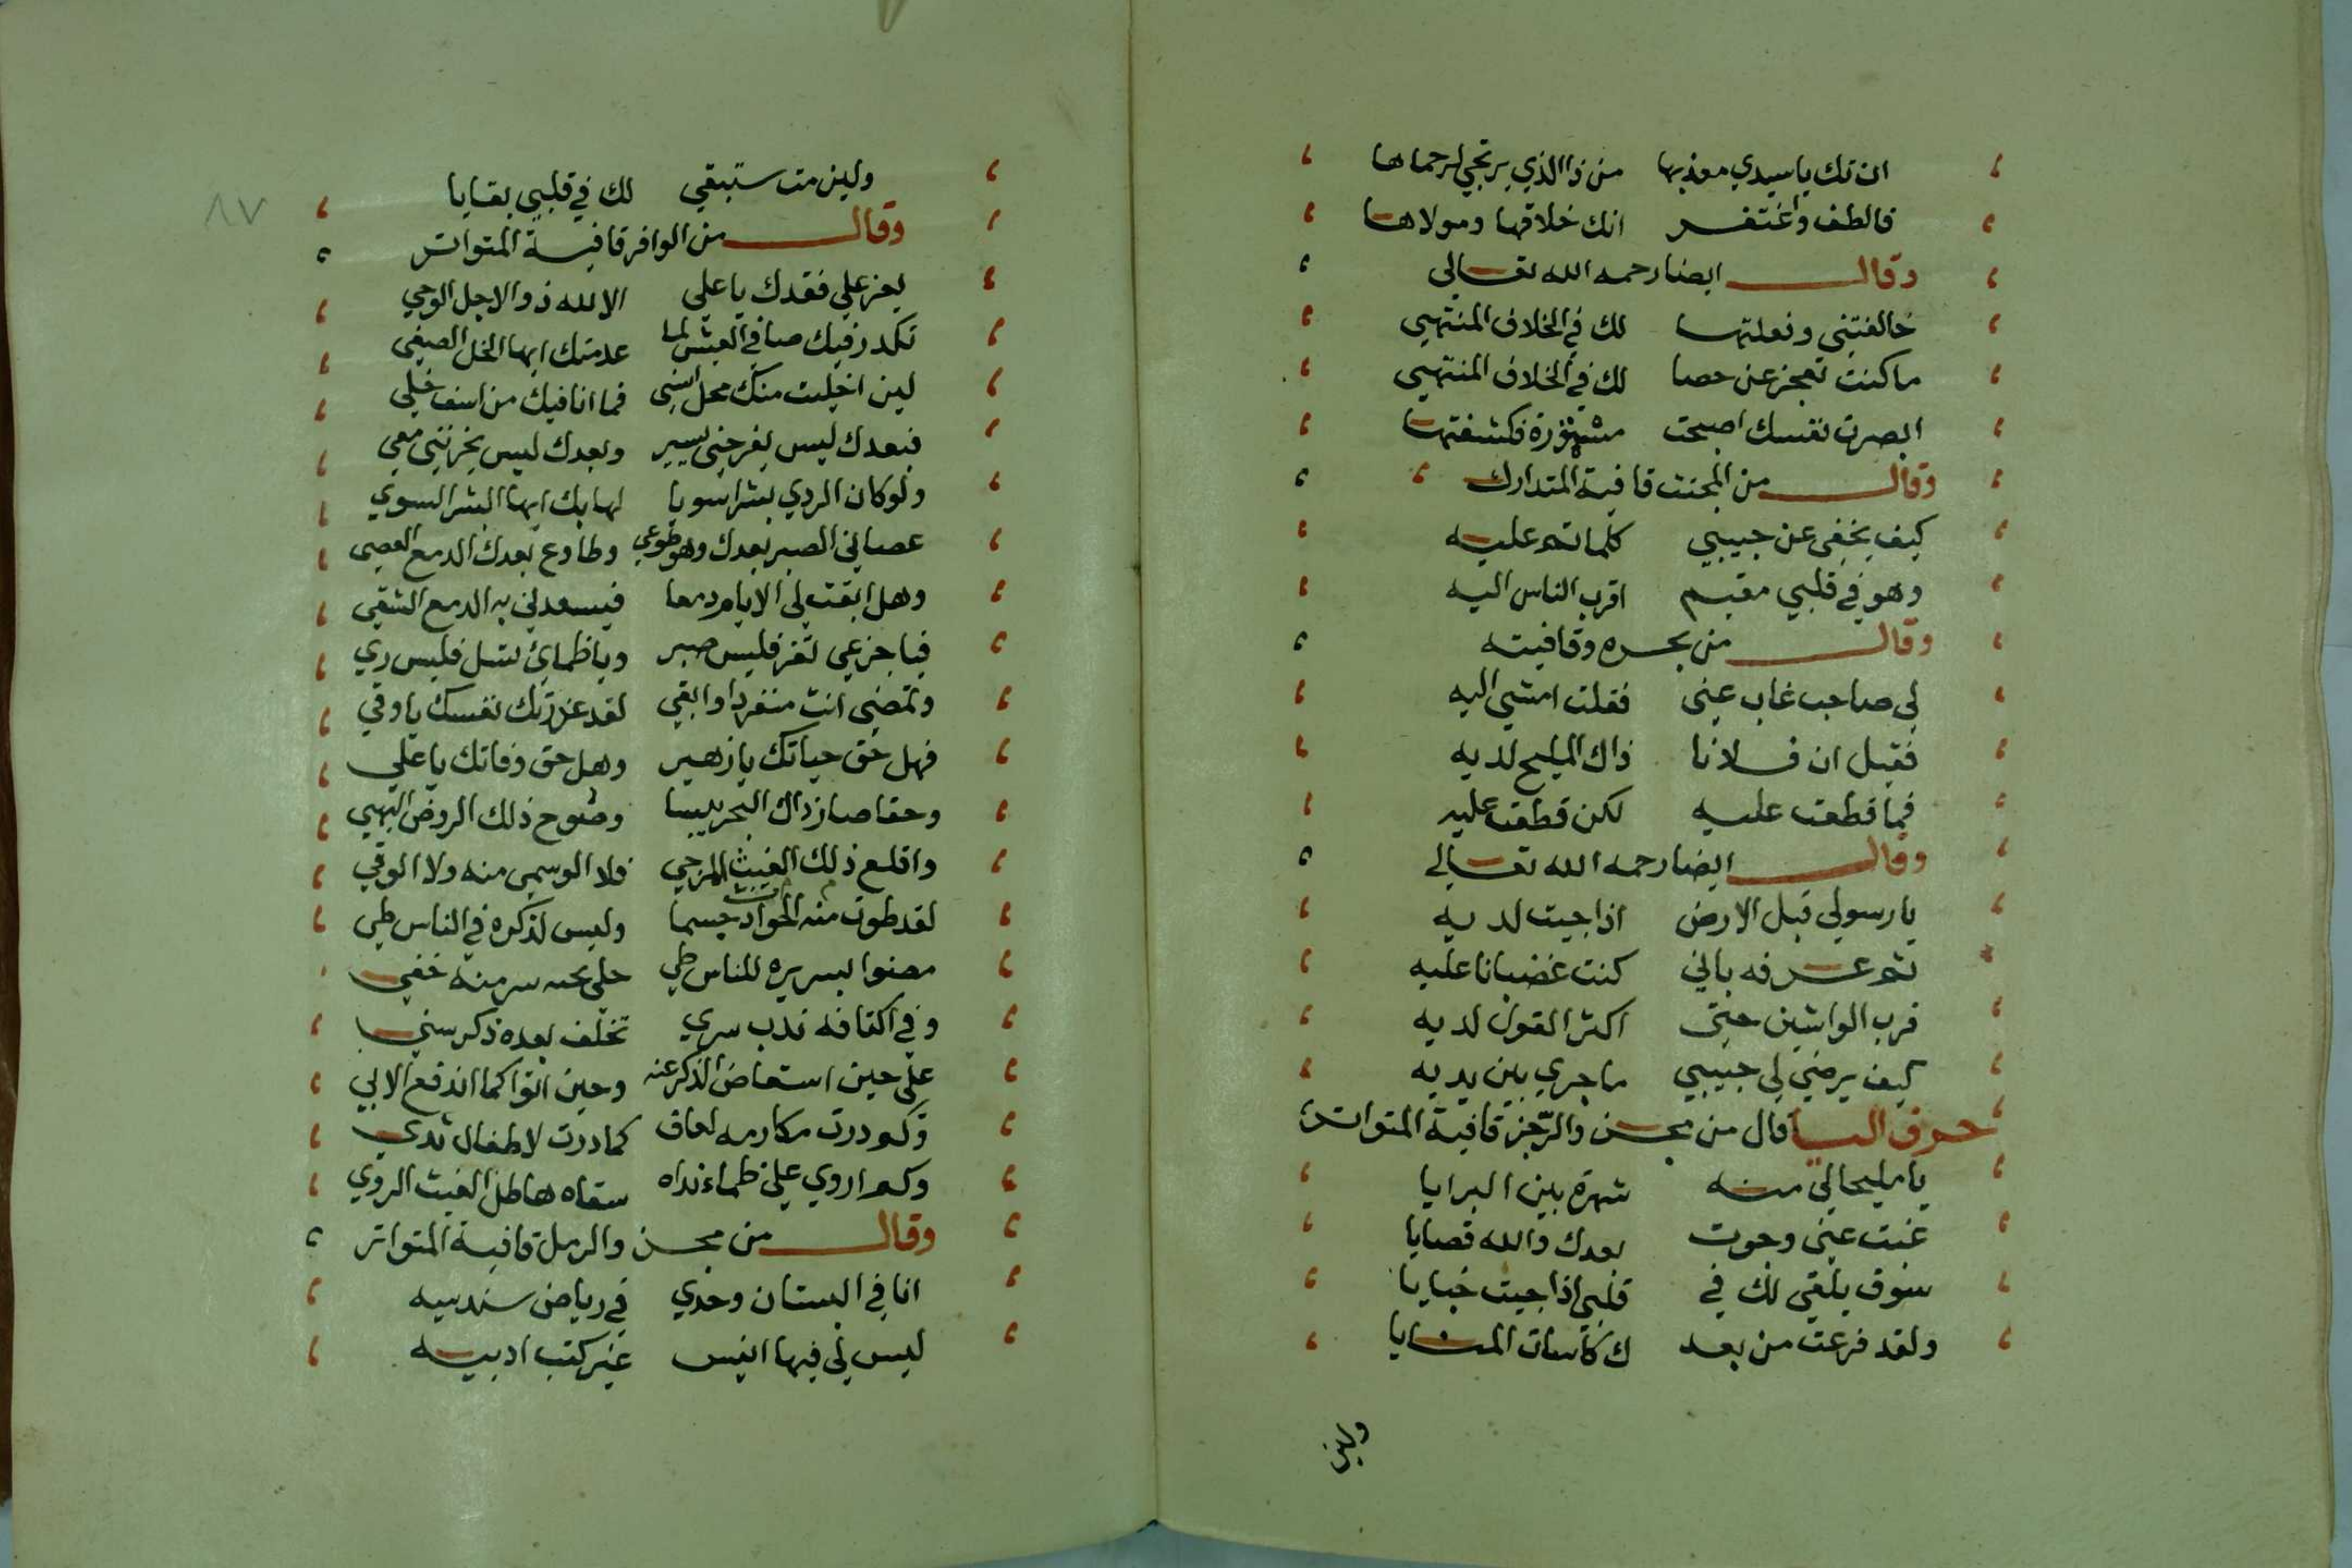 ان تك يا سيدي معذبها من ذا الذي يرتجي لرحماها
فالطف واغتفر انك خلاقها ومولاها
وقال ايضا رحمه الله تعالى
خالفتني وفعلتها لك في الخلاف المنتهي
ما كنت تعجز عن حصا لك في الخلاف المنتهي
ابصرت نفسك اصبحت مشهورة فكشفتها
وقال من المجتث قافية المتدارك
كيف يخفى عن حبيبي كلما تم عليه
وهو في قلبي مقيم اقرب الناس اليه
وقال من بحره وقافيته
لي صاحب غاب عني فقلت امشي اليه
فقيل ان فلانا ذاك المليح لديه
فما قطعت عليه لكن قطعت عليه
وقال ايضا رحمه الله تعالى
يا رسولي قبل الارض اذا جيت لديه
ثم عرفه باني كنت غضبانا عليه
فرب الواشين حتى اكثر القول لديه
كيف يرضي لي حبيبي ما جري بين يديه
حرف اليا قال من مجز والرجز قافية المتواتر
يا مليحا لي منه شهرة بين البرايا
غبت عني وجرت بعدك والله قصايا
سوف يلقى لك في قلبي اذا جيت خبايا
ولقد فرعت من بعد ك كاسات المنايا
ولين
٨٧
ولين مت ستبقي لك في قلبي بقايا
وقال من الوافر قافية المتواتر
يعز علي فقدك يا علي الا لله ذو الاجل الوحي
تكدر فيك صافي العيش لما عدمتك ايها الخل الصفي
لين اخليت منك محل انسي فما انا فيك من اسف خلي
فبعدك ليس يفرحني بسير وبعدك ليس يحزنني معي
ولو كان الردي بشرا سويا لهابك ايها البشر السوي
عصاني الصبر بعدك وهو طوعي وطاوع بعدك الدمع العصي
وهل ابقت لي الايام دمعا فيسعدني به الدمع الشقي
فيا جزعي تعز فليس صبر ويا ظمائ تسل فليس ري
وتمضي انت منفردا وابقي لقد غررتك نفسك يا وفي
فهل حق حياتك يا زهير وهل حق وفاتك يا علي
وحقا صار ذاك البحر يبسا وصوح ذلك الروض البهي
واقلع ذلك الغيث المرجي فلا الوسمي منه ولا الولي
لقد طوت منه الحوادث جسما وليس لذكره في الناس طي
مضوا بسريره للناس طي علي سر منه خفي
وفي اكفانه ندب سري تخلف بعده ذكر سني
علي حين استعاض الذكر عنه وحين اتوا كما اندفع الاتي
وكم درت مكارمه لعاف كما درت لاطفال ثدي
وكم اروي علي ظماء نداه سقاه هاطل الغيث الروي
وقال من مجز والرمل قافية المتواتر
انا في البستان وحدي في رياض سندسيه
ليس لي فيها انيس غير كتب ادبيه